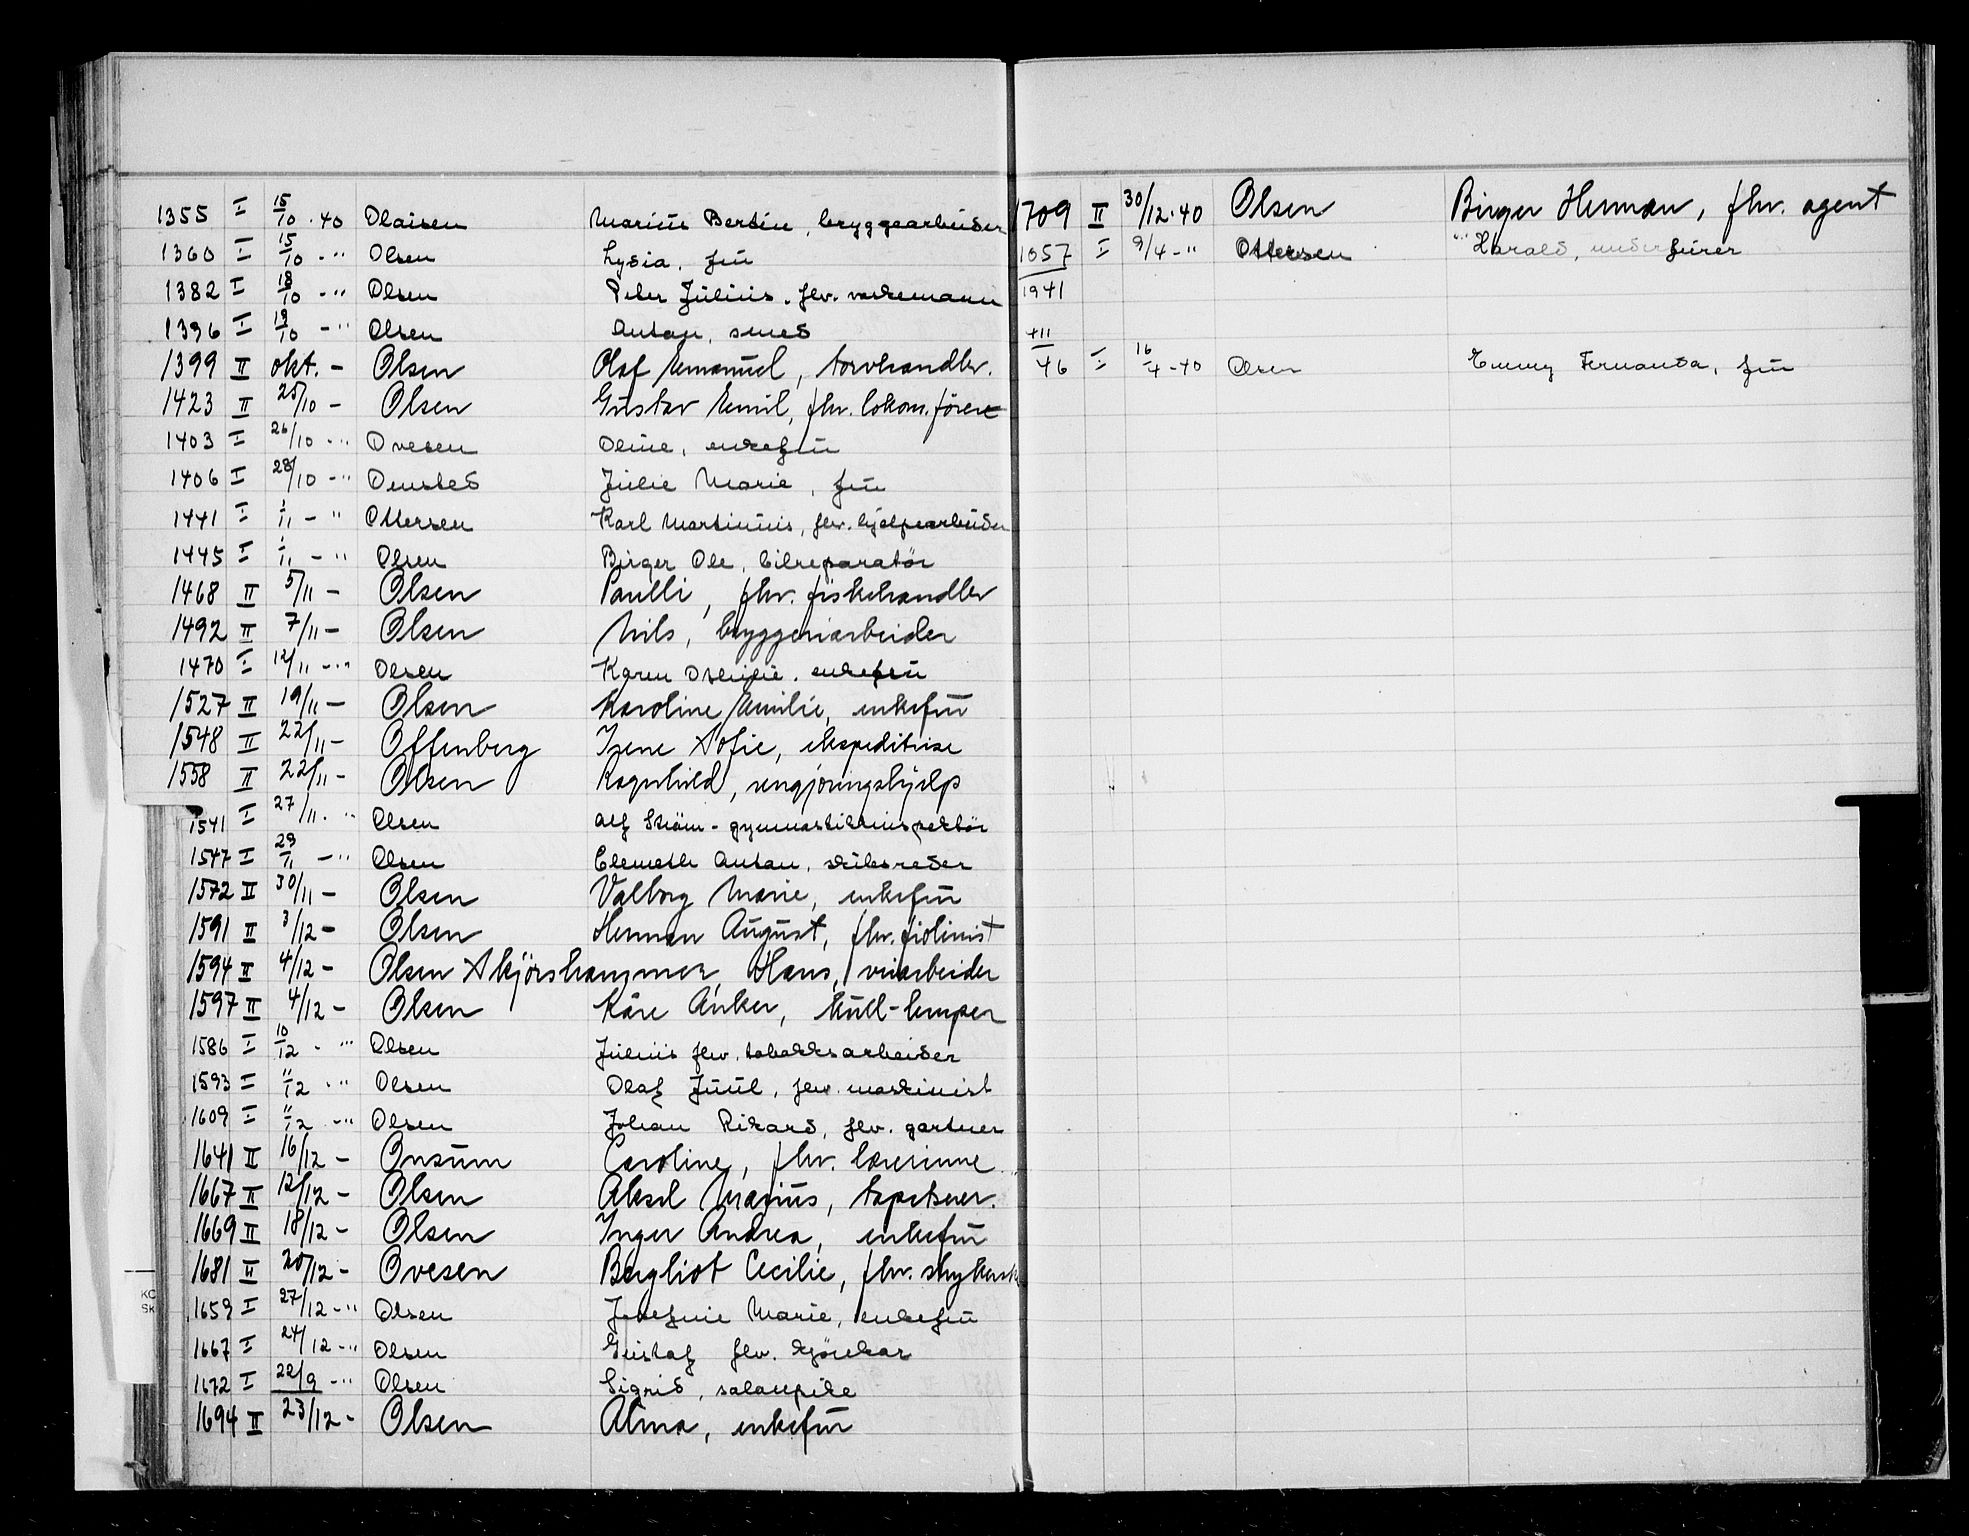 1355 I 15/10 - 40 Olaisen Marius Bertin, bryggearbeider
1360 I 15/10 - " Olsen Lydia, frü
1382 I 18/10 - " Olsen Peter Julius. fhv. vaktmann
1396 I 19/10 - " Olsen Anton, smed
1399 II okt. - Olsen Olaf Emanuel, torvhandler.
1423 II 25/10 - Olsen Gustav Emil, fhv. lokom.fører
1403 I 26/10 - " Ovesen Oline, enkefrü
1406 I 28/10 - " Onsted Julie Marie, frü
1441 I 1/11 - " Ottersen Karl Martinius, fhv. hjelpearbeider
1445 I 1/11 - " Olsen Birger Ole, bilreparatør
1468 II 5/11 - Olsen Paulli, fhv. fiskehandler
1492 II 7/11 - Olsen Nils, bryggeriarbeider
1470 I 12/11 - " Olsen Karen Otilie. enkefrü
1527 II 19/11 - Olsen Karoline Emilie, enkefrü
1548 II 22/11 - Offenberg Irene Sofie, ekspeditrise
1558 II 22/11 - Olsen Ragnhild, rengjøringshjelp
1541 I 27/11 - " Olsen Alf Strøm - gymnastikkinspektør
1547 I 29/11 - " Olsen Elemeth Anton, skibsreder
1572 II 30/11 - Olsen Valborg Marie, enkefrü
1591 II 3/12 - Olsen Herman August, fhv. fiolinist
1594 II 4/12 - Olsen Skjörshammer, Hans, veiarbeider
1597 II 4/12 - Olsen Kåre Anker, kull-lemper
1586 I 10/12 - " Olsen Julius fhv. tobakksarbeider
1593 I 11/12 - " Olsen Olaf Juul, fhv. maskinist
1609 I 11/12 - " Olsen Johan Rikard, fhv. gartner
1641 II 16/12 - Onsum Caroline, fhv. lærerinne
1667 II 12/12 - Olsen Aksel Marius, tapetserer.
1669 II 18/12 - Olsen Inger Andrea, enkefrü
1681 II 20/12 - Ovesen Bergliot Cecilie, fhv.
1659 I 27/12 - " Olsen Josefine Marie, enkefrü
1667 I 24/12 - " Olsen Gustaf fhv. skjønkar
1672 I 22/9 - " Olsen Sigrid, salongpike
1694 II 23/12 - Olsen Alma, enkefrü
1709 II 30/12 - 40 Olsen Birger Herman, fhv. agent
1057 I 9/4 - " Ottesen Harald, underfurer
1941
411
46 I 16/4 - 40 Olsen Emmy Fernanda, frü